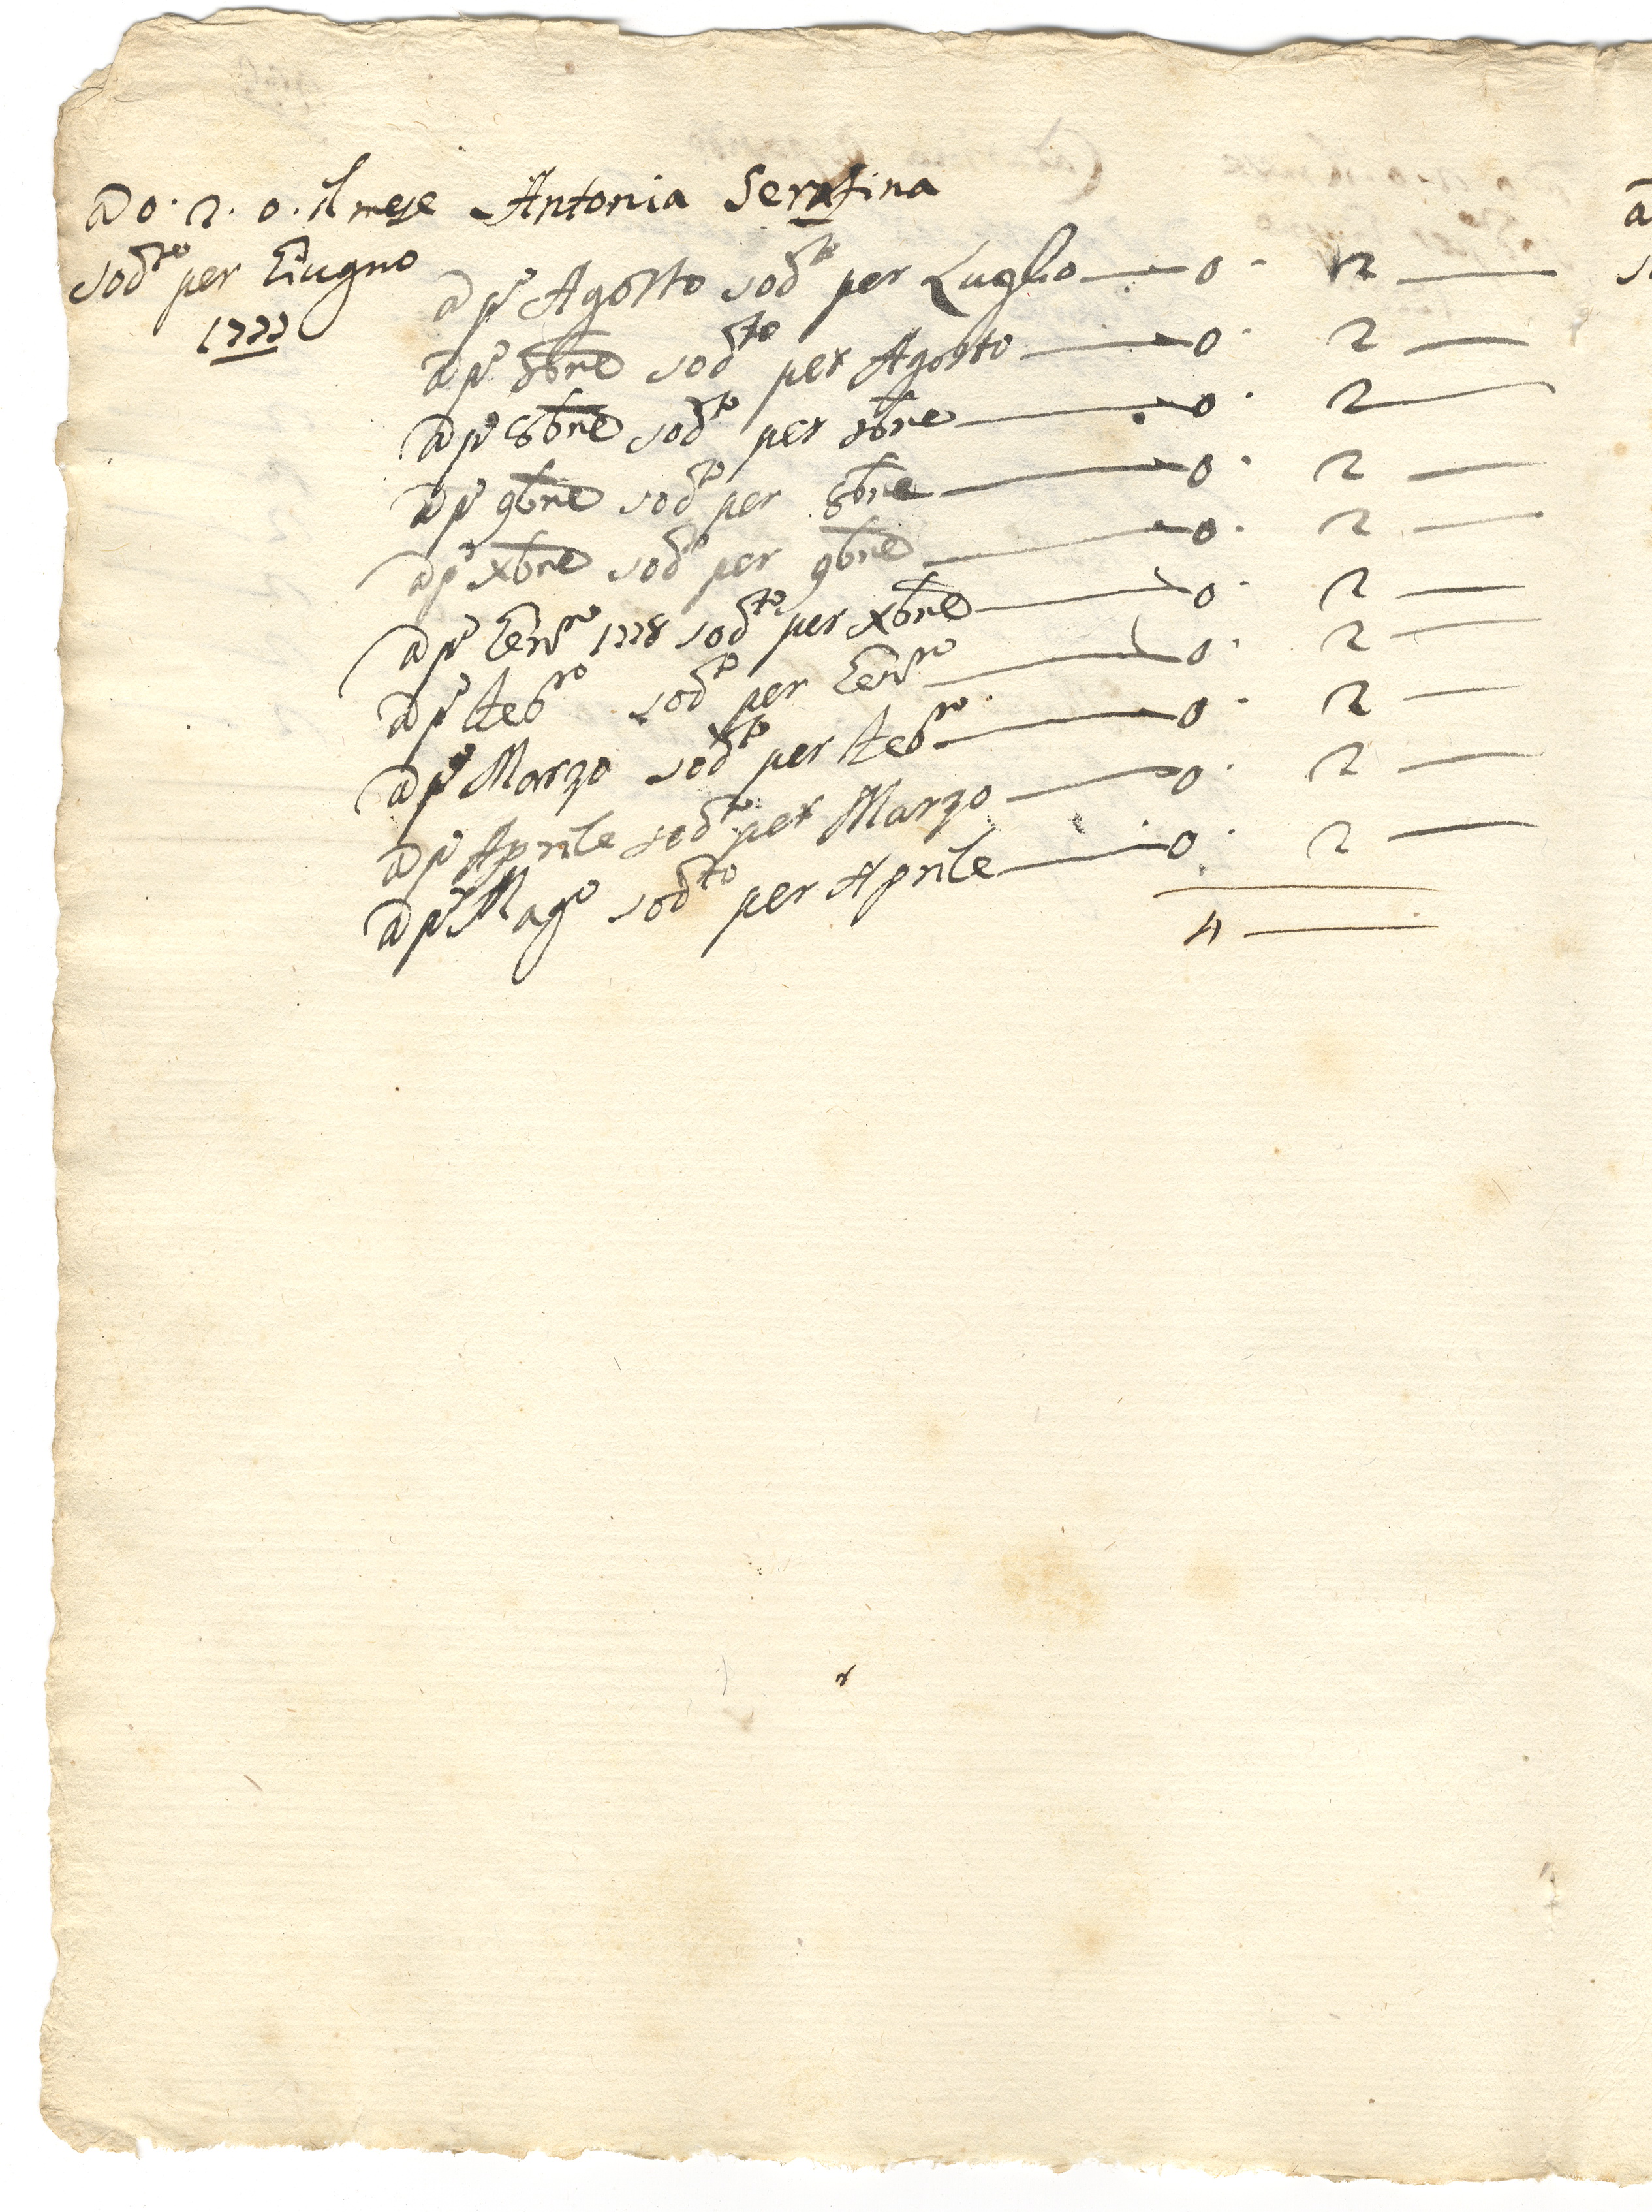 a 0. 2. 0. il mese Antonia Serafina
sodto per Giugno
1777
a po Agosto sodto per Luglio — 0. 2 —
a po 7bre sodto per Agosto — 0. 2 —
a po 8bre sodto per 7bre — 0. 2 —
a po 9bre sodto per 8bre — 0. 2 —
a po Xbre sodto per 9bre — 0. 2 —
a po Genro 1778 sodto per Xbre — 0. 2 —
a po Febro sodto per Genro — 0. 2 —
a po Marzo sodto per Febro — 0. 2 —
a po Aprile sodto per Marzo — 0. 2 —
a po Mago sodto per Aprile — 0. 2 —